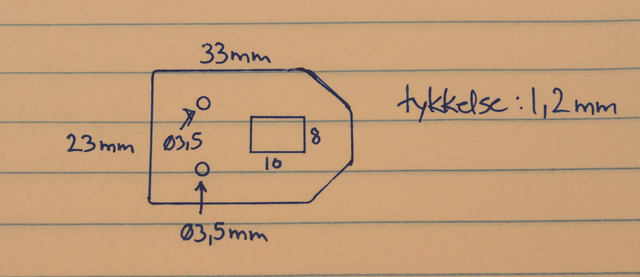 33mm
tykkelse: 1,2mm
23mm
Ø3,5
8
10
Ø3,5mm